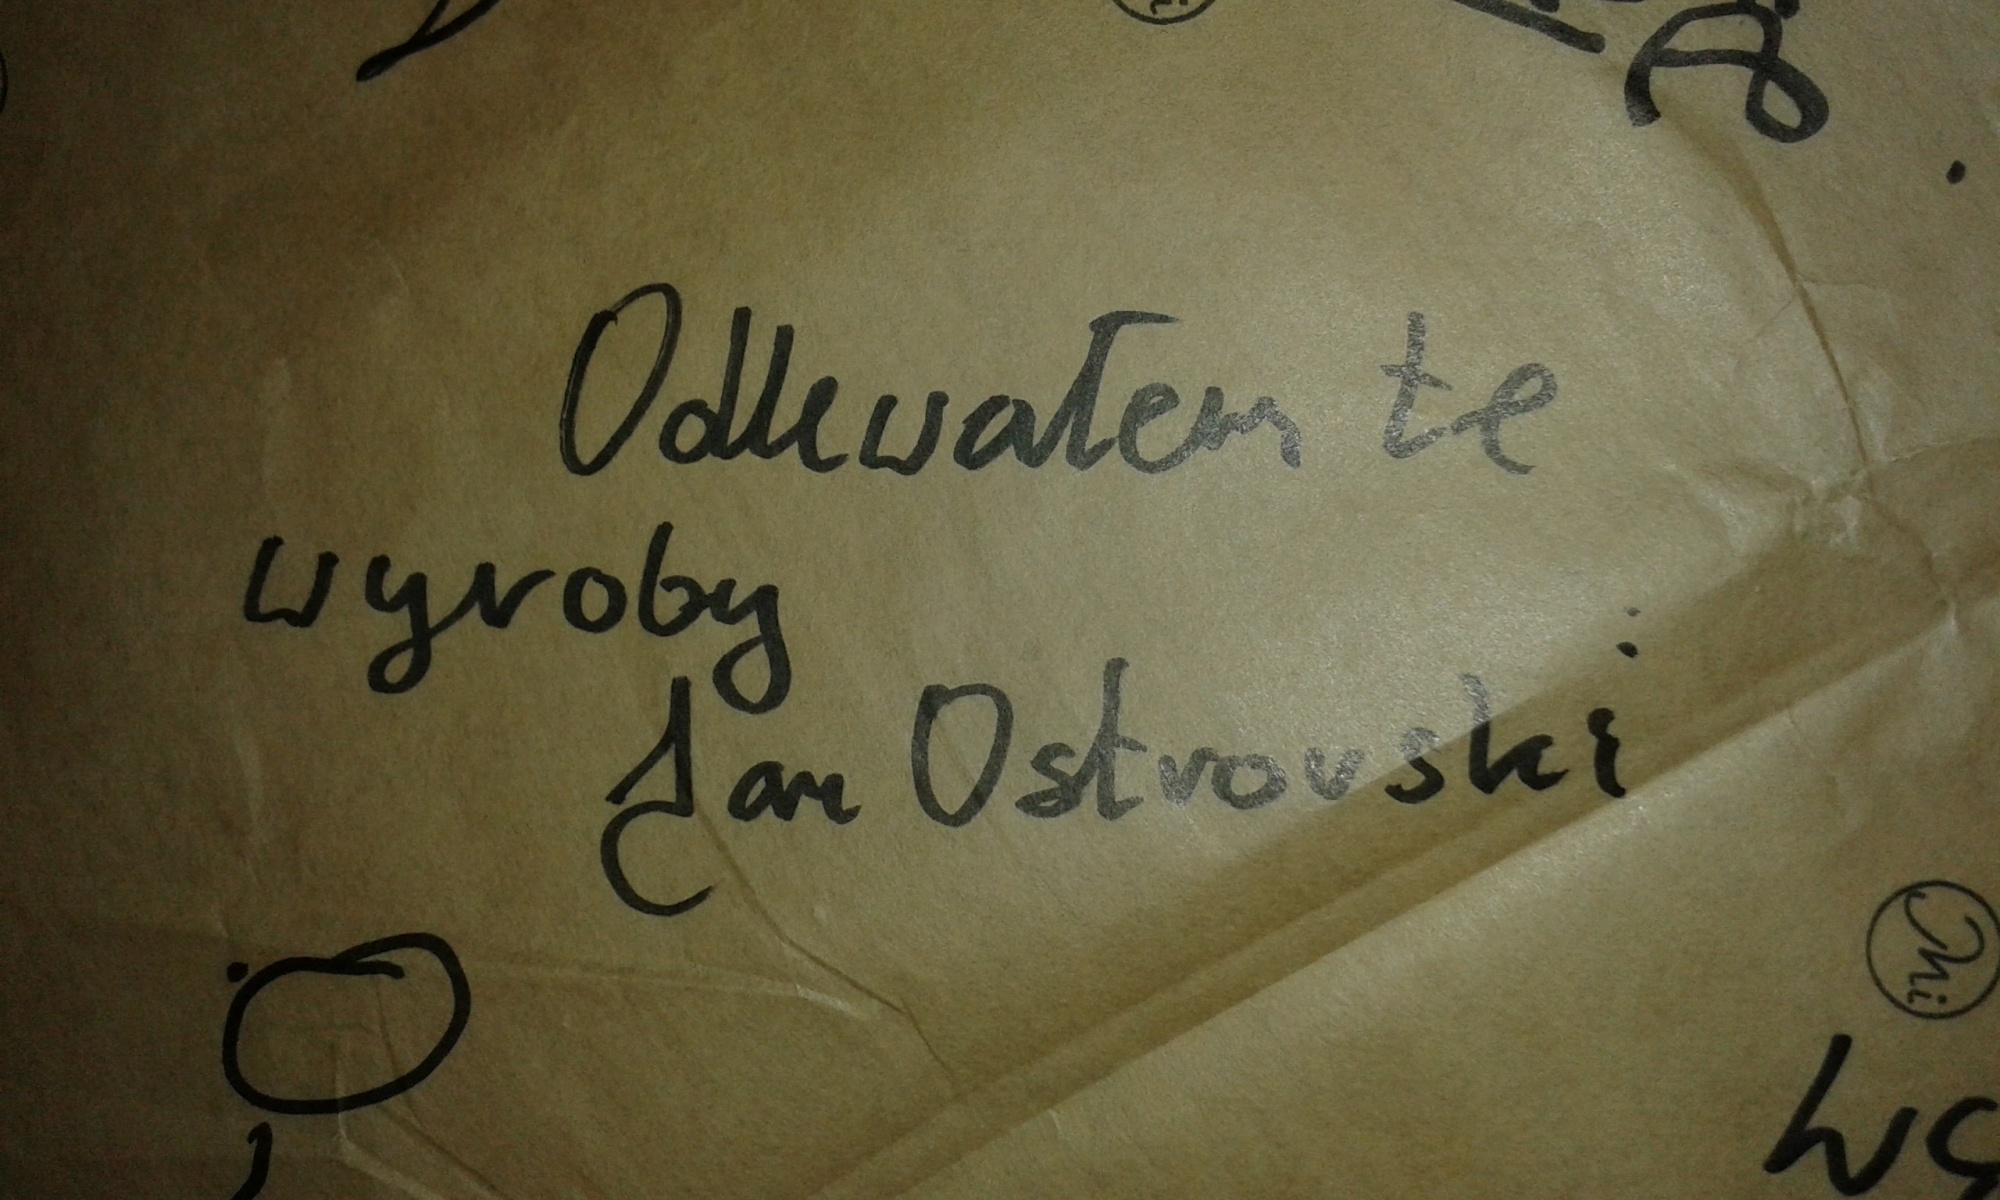 Odlewałem te
wyroby
Jan Ostrowski
Mi